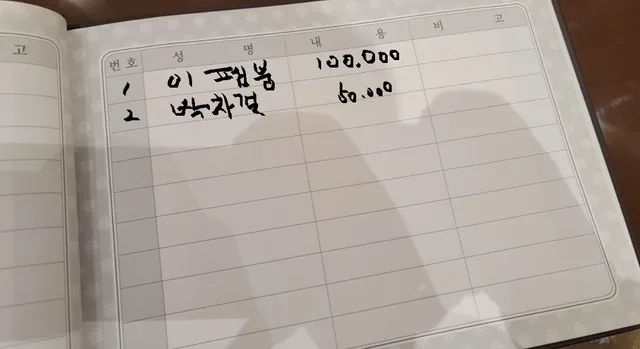 고
번호 성 명 내 용 비 고
1 이표붐 100.000
2 박차결 50.000